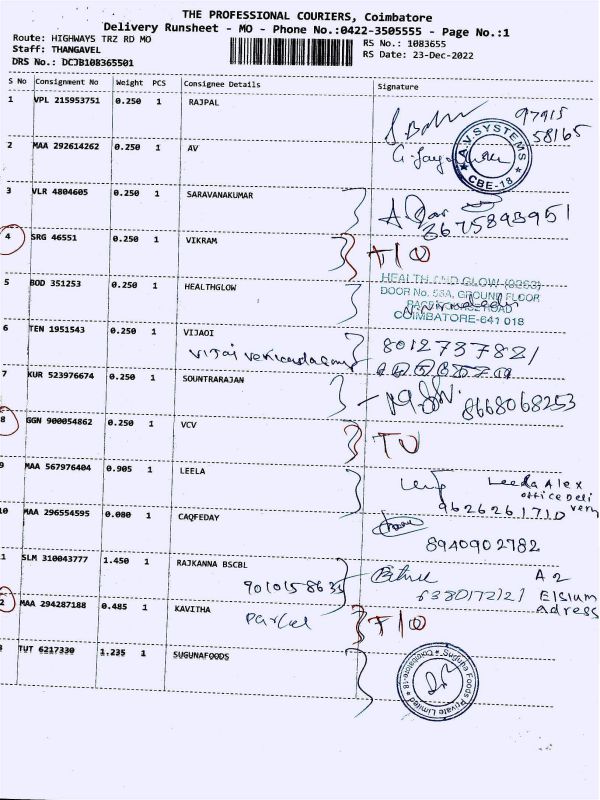 THE PROFESSIONAL COURIERS, Coimbatore
Delivery Runsheet - MO - Phone No.:0422-3505555 - Page No.:1
Route: HIGHWAYS TRZ RD MO
Staff: THANGAVEL
DRS No.: DCJB108365501
RS No.: 1083655
RS Date: 23-Dec-2022
S No Consignment No Weight PCS Consignee Details Signature
1 VPL 215953751 0.250 1 RAJPAL
97915
58165
2 MAA 292614262 0.250 1 AV
A.V.SYSTEMS
CBE-18
3 VLR 4804605 0.250 1 SARAVANAKUMAR
8675893951
4 SRG 46551 0.250 1 VIKRAM
5 BOD 351253 0.250 1 HEALTHGLOW
HEALTH AND GLOW
DOOR No. 56A, GROUND FLOOR
RACE COURSE ROAD
COIMBATORE-641 018
6 TEN 1951543 0.250 1 VIJAOI
8012737821
7 KUR 523976674 0.250 1 SOUNTRARAJAN
8668068253
8 GGN 900054862 0.250 1 VCV
9 MAA 567976404 0.905 1 LEELA
Leeda Alex
office Deli
very
9626261710
10 MAA 296554595 0.080 1 CAQFEDAY
8940902782
1 SLM 310043777 1.450 1 RAJKANNA BSCBL
9010158635
6380172121
A 2
Elsium
Adress
2 MAA 294287188 0.485 1 KAVITHA
Parcel
F/O
TUT 6217330 1.235 1 SUGUNAFOODS
Suguna Foods Private Limited
Coimbatore-18